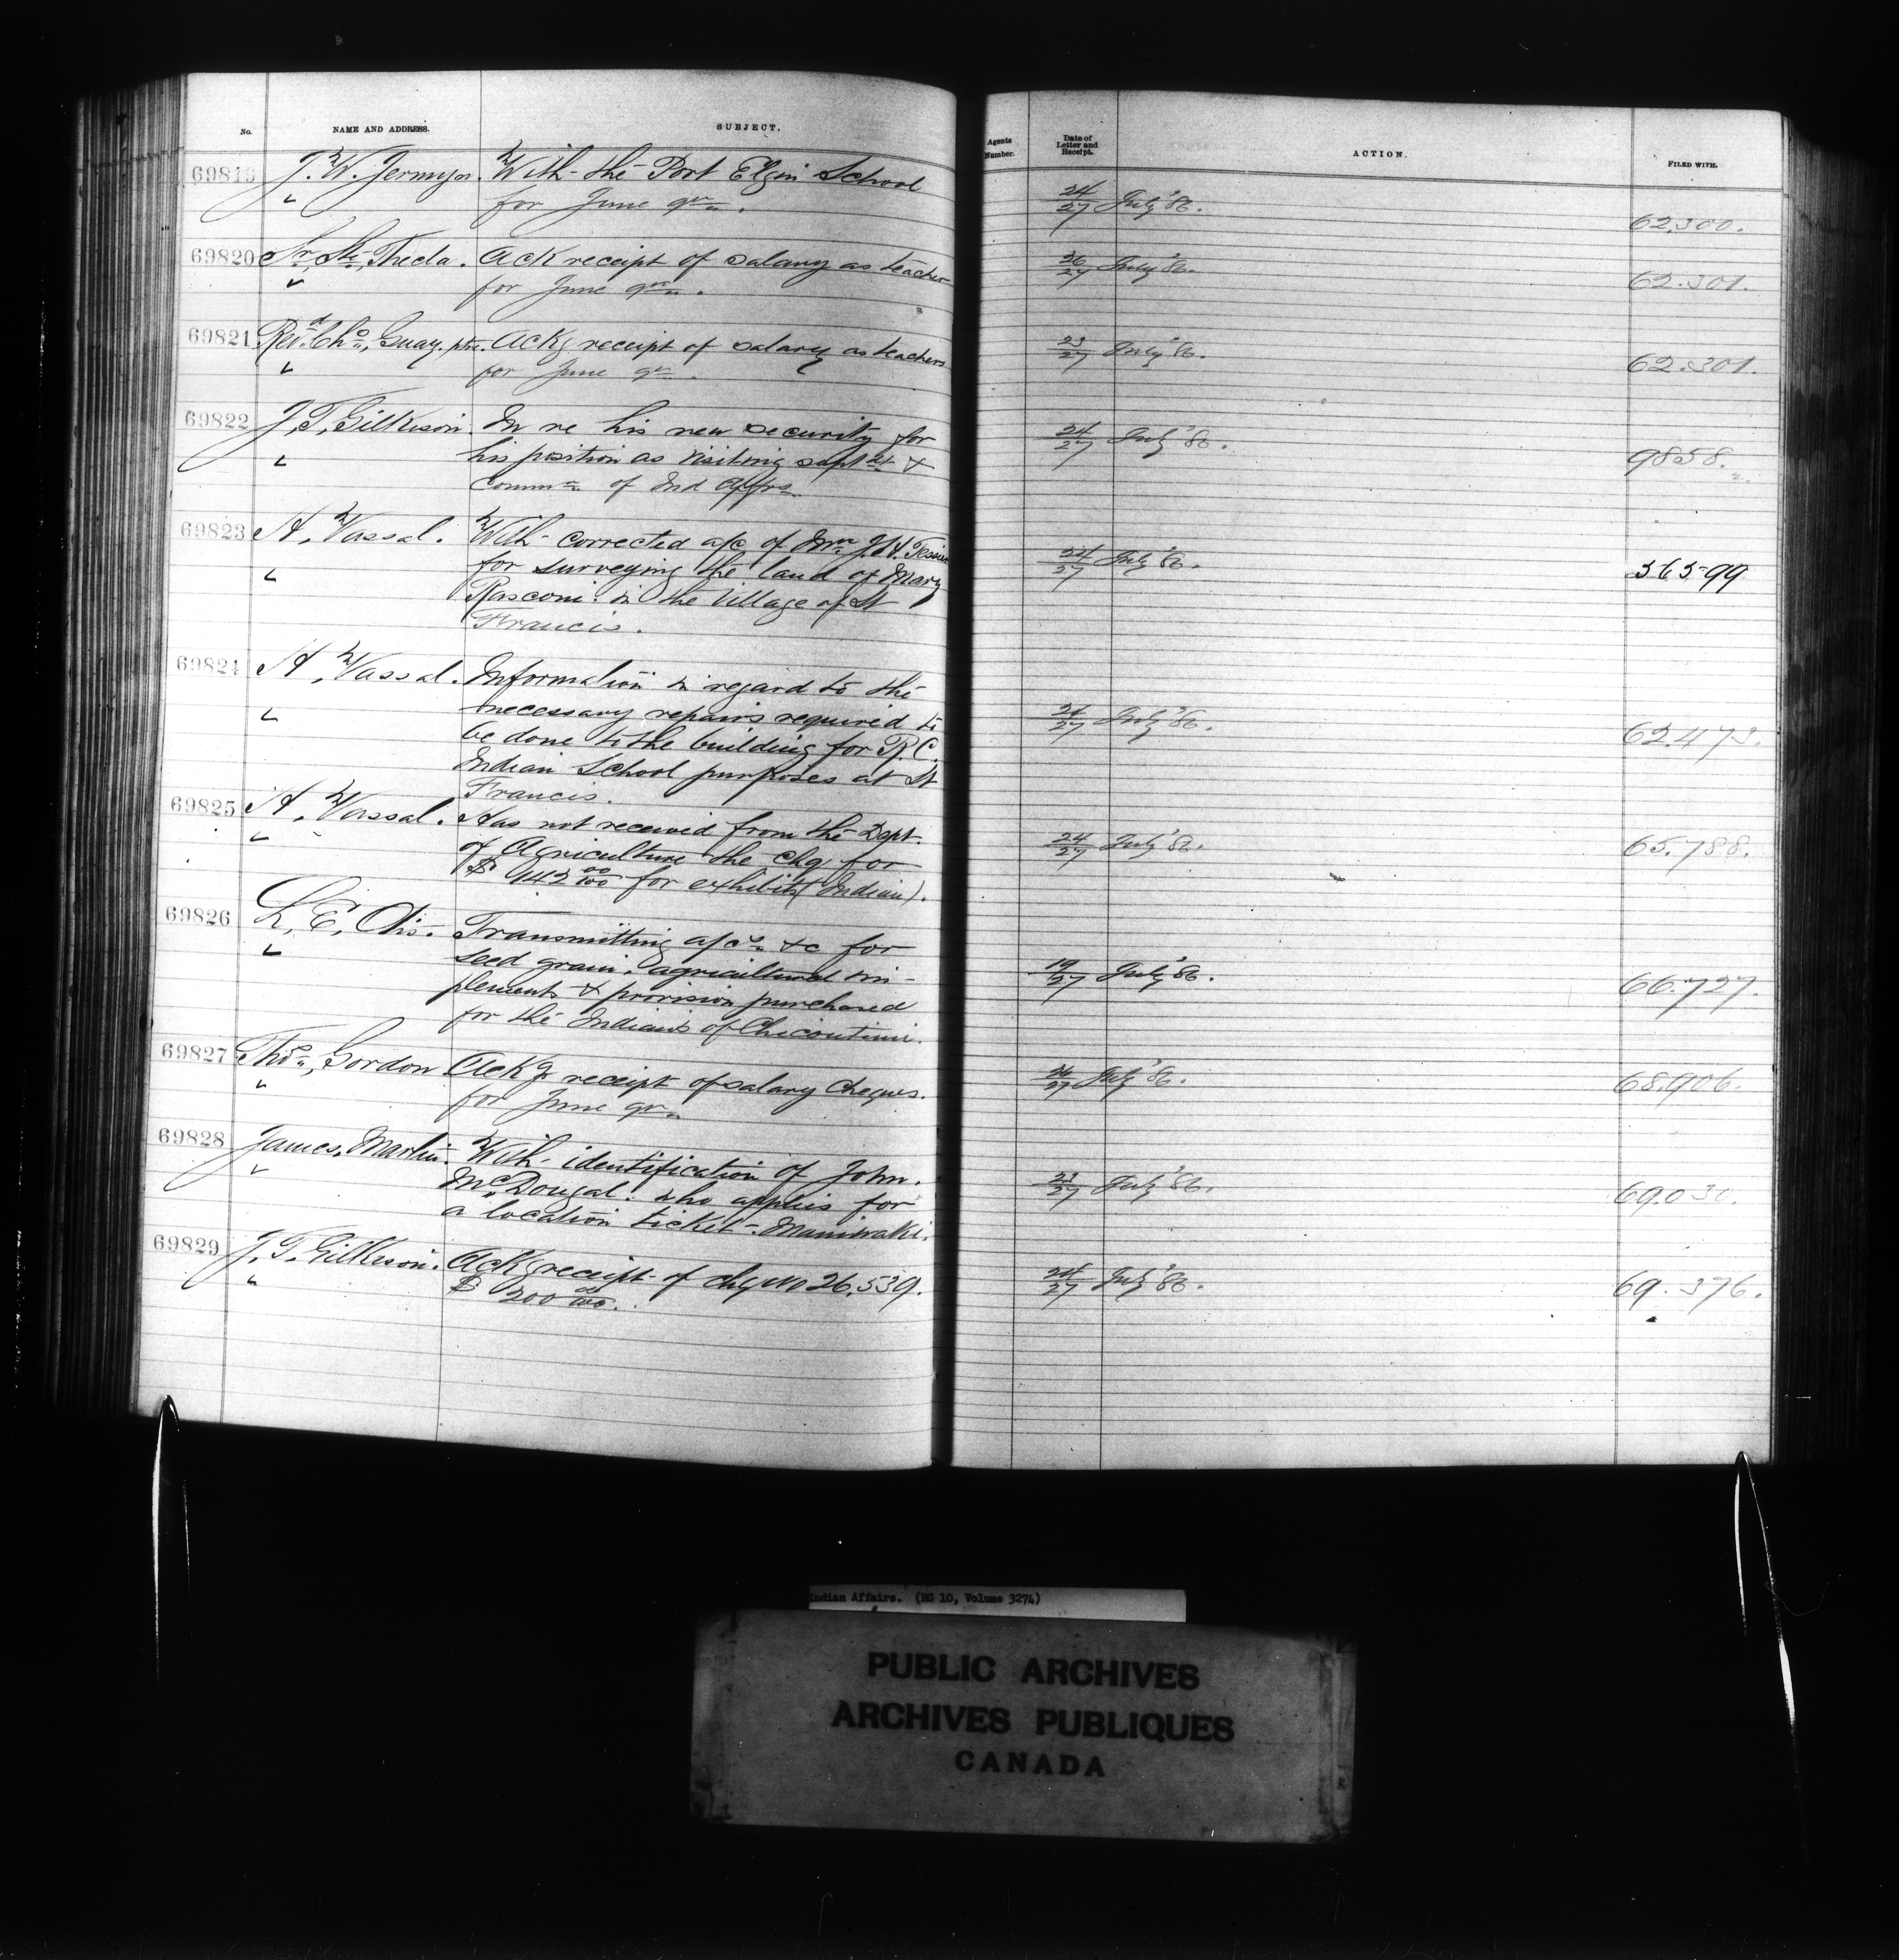 No. NAME AND ADDRESS. SUBJECT. Agents Number. Date of Letter and Receipt. ACTION. FILED WITH.
69819 J. W. Jermyn. With the Port Elgin School
" for June qr. 24/27 July '86. 62,300.
69820 Sr. Ste. Theda. Ack receipt of salary as teacher
" for June qr. 26/27 July '86. 62.301.
69821 Revd. Chs. Guay. ptre. Ackg receipt of salary as teachers
" for June qr. 23/27 July '86. 62.301.
69822 J. T. Gilkison. In re his new security for
" his position as visiting supt &
Commr. of Ind Affrs 24/27 July '86. 9858.
69823 A. Vassal. With corrected a/c of Mr J. H.
" for surveying the land of Mary
Rasconi. in the Village of St
Francis. 24/27 July '86. 36599
69824 A. Vassal. Information in regard to the
" necessary repairs required to
be done to the building for R. C.
Indian School purposes at St
Francis. 27 July '86. 62.473.
69825 A. Vassal. Has not received from the Dept.
" of Agriculture the chq for
$ 00/100 for exhibits (Indian). 24/27 July '86. 65.788.
69826 L. E. Otis. Transmitting a/cs &c for
" seed grain. agricultural im-
plements & provision purchased
for the Indians of Chicoutimi. 19/27 July '86. 66.727.
69827 Thos. Gordon Ackg receipt of salary Cheques.
" for June qr. 27 July '86. 68.906.
69828 James. Martin. With identification of John.
" McDougal. who applies for
a location ticket - Maniwaki. 23/27 July '86. 69.030.
69829 J. T. Gilkison. Ackg receipt of chq no 26,539.
" $ 200 00/100. 24/27 July '86. 69.376.
Indian Affairs. (RG 10, Volume 3274)
PUBLIC ARCHIVES
ARCHIVES PUBLIQUES
CANADA